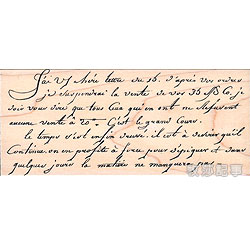 J'ai Vs chère lettre du 16. d'après vos ordres
je suspendrai la vente de vos 35 B Co. je
dois vous dire que tous Ceux qui en ont ne Refusent
aucune vente à 20 C'est le grand Cours.
le temps s'est enfin decidé. il est à desirer qu'il
Continue, on en profite à force pour dépiquer et dans
quelques jours la matière ne manquera pas